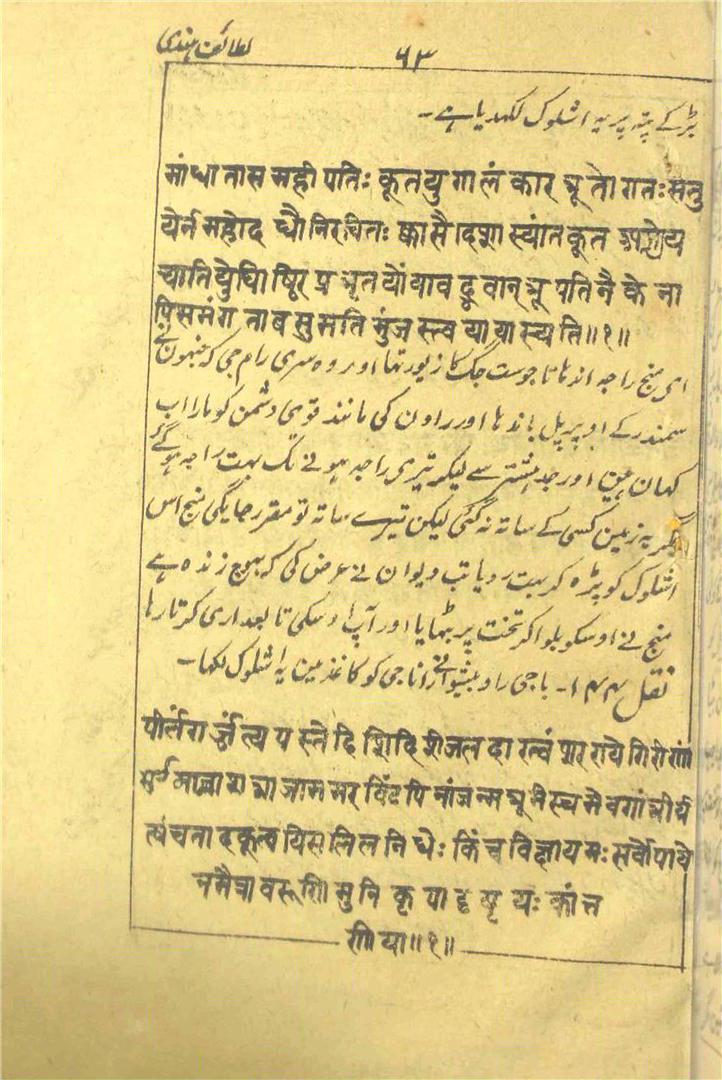 لطائف ہندی ۶۳
بڑکے پتہ پر یہ اشلوک لکھدیا ہے۔
मांधातास मही पतिः कृतयु गालं कार भू तो गतः सेतु
येर्न महोद धौ विरचितः क्कासै दिशा स्यांत कृत
च्याति युधिष्ठिर प्रभृतयो यावद्भवान् भू पति नै के ना
पिसमंग ताब सुमति मुंज स्त्व या या स्य ति॥१॥
ای منج راجہ اندہاتا جو ست جگ کا زیور تہا اور وہ سری رام جی کہ جنہون نے
سمندر کے اوپر پل باندہا اور راون کی مانند قوی دشمن کو مارا اب
کہان ہین اور جدہشتر سے لیکر تیری راجہ ہونے تک بہت راجہ ہو گئے
مگر یہ زمین کسی کے ساتہ نہ گئی لیکن تیرے ساتہ تو مقرر جایگی منج اس
اشلوک کو پڑہ کر بہت رویا تب دیوان نے عرض کی کہ بہوج زندہ ہے
منج نے اوسکو بلوا کر تخت پر بٹہایا اور آپ اوسکی تابعداری کرتا رہا
نقل ۱۴۴۔ باجی راو پیشوا نے راناجی کو کاغذ مین یہ اشلوک لکہا۔
दिशिदिशी जल दा रत्वं शर राये गिरीणां
जन्म भू मैस्च मे व गां भीर्य
त्यंचता दकूत्व यिसलिल निधेः किंच विज्ञायमः सर्वोपाये
नमैत्रा वरूणि मुनि कृ पा दृ षृ यः कांत्त
रणि या॥१॥